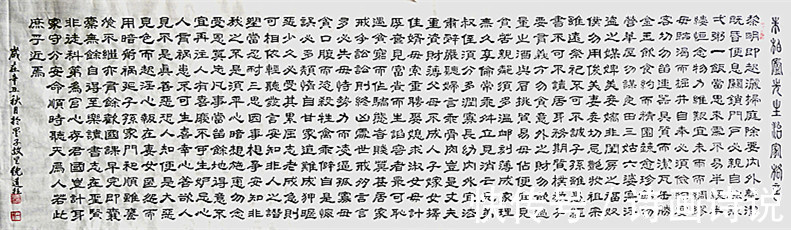 朱柏廬先生治家格言
黎明即起灑掃庭除要內外整潔
既昏便息關鎖門戶必親自檢點
一粥一飯當思來處不易半絲半
縷恒念物力維艱宜未雨而綢繆
毋臨渴而掘井自奉必須儉約宴
客切勿留連器具質而潔瓦缶勝
金玉飲食約而精園蔬愈珍饈勿
營華屋勿謀良田三姑六婆實淫
盜之媒婢美妾嬌非閨房之福奴
僕勿用俊美妻妾切忌艷妝祖宗
雖遠祭祀不可不誠子孫雖愚經
書不可不讀居身務期質樸教子
要有義方勿貪意外之財勿飲過
量之酒與肩挑貿易毋佔便宜見
貧苦親鄰須多溫恤刻薄成家理
無久享倫常乖舛立見消亡兄弟
叔侄須分多潤寡長幼內外宜法
肅辭嚴聽婦言乖骨肉豈是丈夫
重資財薄父母不成人子嫁女擇
佳婿毋索重聘娶媳求淑女勿計
厚奩見富貴而生諂容者最可恥
遇貧窮而作驕態者賤莫甚居家
戒爭訟訟則終凶處世戒多言言
多必失毋恃勢力而凌逼孤寡毋
貪口腹而恣殺牲禽乖僻自是悔
誤必多頹惰自甘家道難成狎暱
惡少久必受其累屈志老成急則
可相依輕聽發言安知非人之譖
愬當忍耐三思因事相爭安知非
我之不是須平心暗想施惠勿念
受恩莫忘凡事當留餘地得意不
宜再往人有喜慶不可生妒忌心
人有禍患不可生喜幸心善欲人
見不是真善惡恐人知便是大惡
見色而起淫心報在妻女匿怨而
用暗箭禍延子孫家門和順雖饔
飧不繼亦有餘歡國課早完即囊
橐無餘自得至樂讀書志在聖賢
非徒科第為官心存君國豈計身
家守分安命順時聽天為人若此
庶乎近焉
歲在辛丑秋月於
快传号 / 诗画诗说